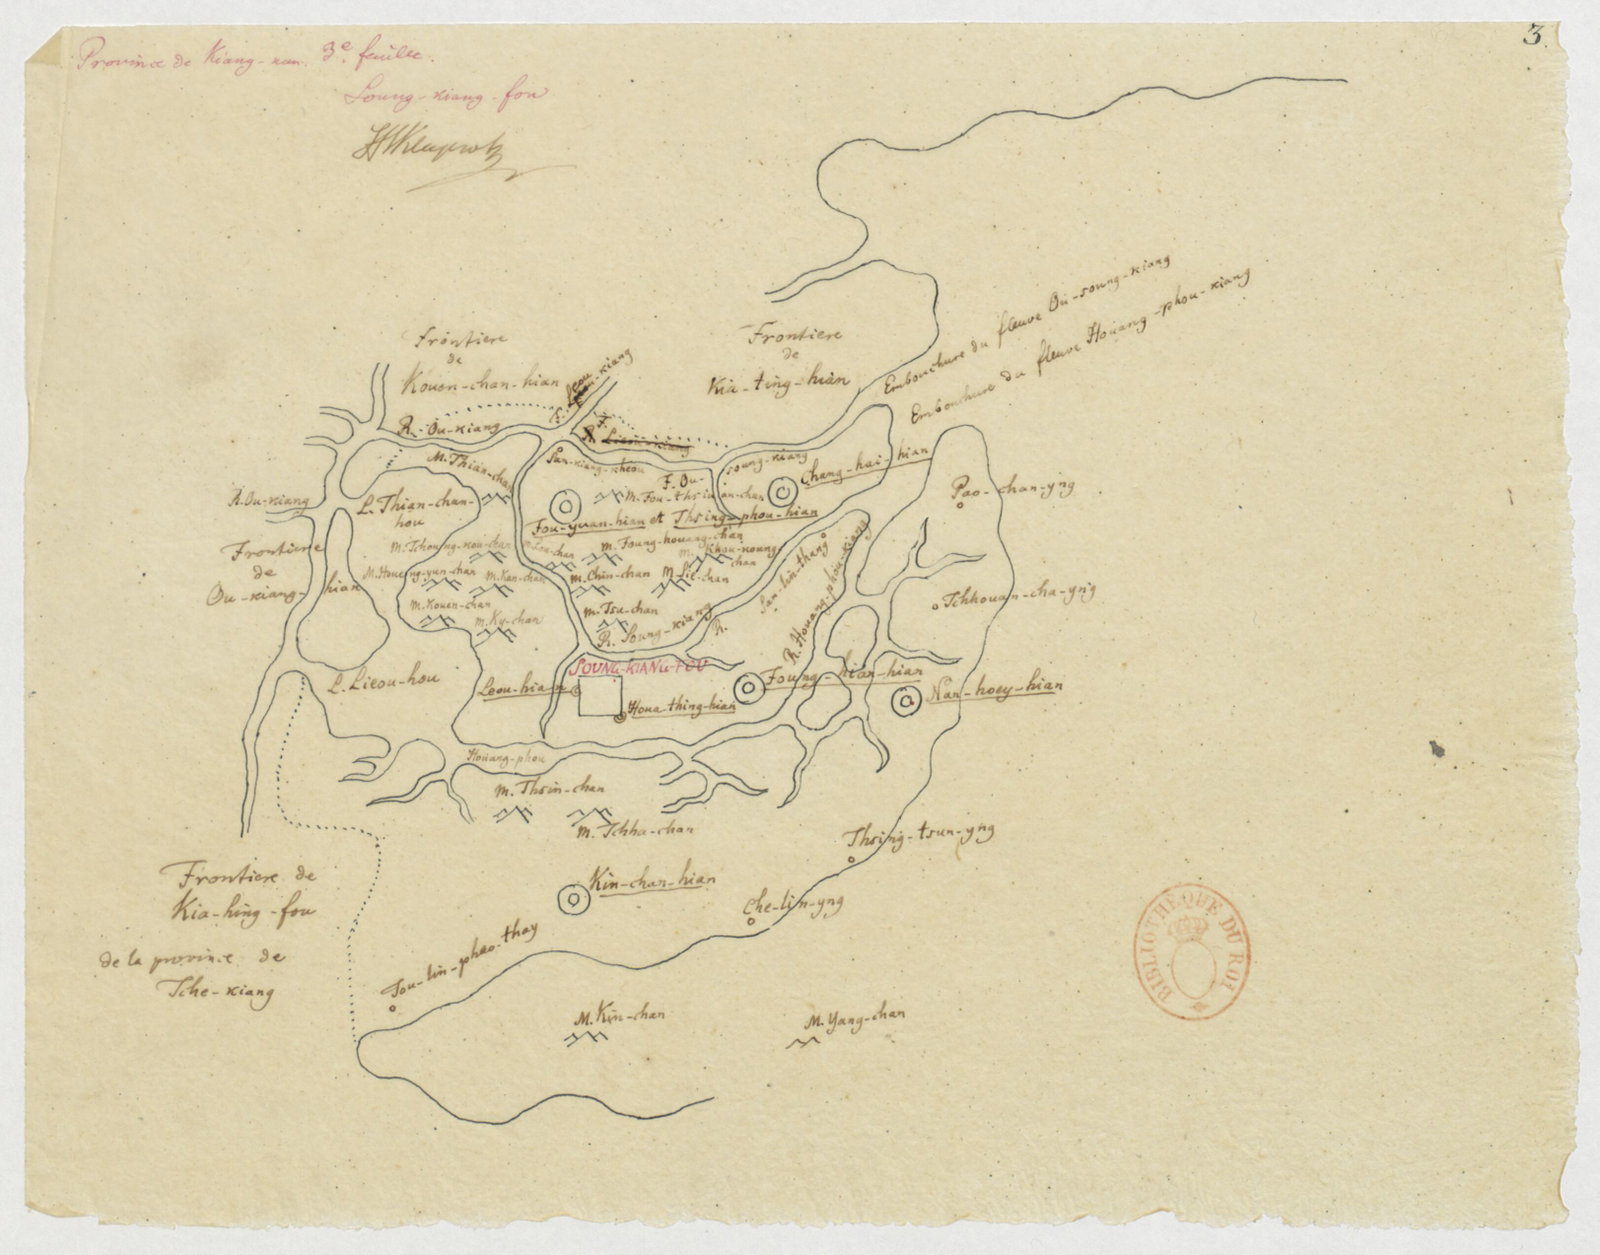 3.
Province de Kiang-nan. 3e. feuille.
Soung-kiang-fou
Embouchure du fleuve Ou-soung-kiang
Embouchure du fleuve Houang-phou-kiang
Frontiere
de
Kouen-chan-hian
Frontiere
de
Kia-ting-hian
R. Ou-kiang
R. Lieou-kiang
San-kiang-kheou
M. Thian-chan
F. Ou-
soung-kiang
Chang-hai-hian
R. Ou-kiang
L. Thian-chan-
hou
Pao-chan-yng
Fou-yuan-hian et Thsing-phou-hian
Frontiere
de
Ou-kiang-hian
M. Tchoung-kou-chan
M. Foung-houang-chan
M. Khou-koung-
chan
M. Houeng-yun-chan
M. Kan-chan
M. Chin-chan
M. Lie-chan
M. Kouen-chan
M. Ky-chan
M. Tsu-chan
San-lin-thang
R. Houang-phou-kiang
Tchhouan-cha-yng
R. Soung-kiang
R.
SOUNG-KIANG-FOU
L. Lieou-hou
Leou-hian
Houa-thing-hian
Foung-hian-hian
Nan-hoey-hian
Houang-phou
M. Thsin-chan
M. Tchha-chan
Thsing-tsun-yng
Kin-chan-hian
Che-lin-yng
Frontiere de
Kia-hing-fou
de la province de
Tche-kiang
Tou-lin-phao-thay
M. Kin-chan
M. Yang-chan
BIBLIOTHEQUE DU ROI